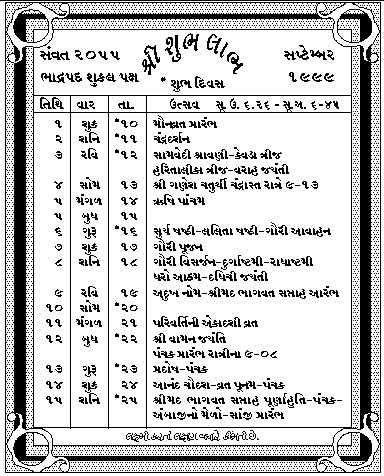 શ્રી શુભ લાભ
સંવત ૨૦૫૫ સપ્ટેમ્બર
ભાદ્રપદ શુકલ પક્ષ * શુભ દિવસ ૧૯૯૯
તિથિ વાર તા. ઉત્સવ સુ. ઉ. ૬.૨૬ - સુ.અ. ૬-૪૫
૧ શુક્ર *૧૦ મૌનવ્રત પ્રારંભ
૨ રાનિ *૧૧ ચંદ્રદર્શન
૩ રવિ *૧૨ સામવેદી શ્રાવણી-કેવડા ત્રીજ
હરિતાલીકા ત્રીજ-વરાહ જયંતી
૪ સોમ ૧૩ શ્રી ગણેશ ચતુર્થી ચંદ્રાસ્ત રાત્રે ૯-૧૭
૫ મંગળ ૧૪ ઋષિ પાંચમ
૫ બુધ ૧૫
૬ ગુરૂ *૧૬ સુર્ય ષષ્ટી-લલિતા ષષ્ટી-ગૌરી આવાહન
૭ શુક્ર ૧૭ ગૌરી પુજન
૮ રાનિ ૧૮ ગૌરી વિસર્જન-દુર્ગાષ્ટમી-રાધાષ્ટમી
ધરો આઠમ-દધિચી જયંતી
૯ રવિ ૧૯ અદુખ નોમ-શ્રીમદ ભાગવત સપ્તાહ આરંભ
૧૦ સોમ *૨૦
૧૧ મંગળ *૨૧ પરિવર્તિની એકાદશી વ્રત
૧૨ બુધ *૨૨ શ્રી વામન જયંતિ
પંચક પ્રારંભ રાત્રીના ૯-૦૮
૧૩ ગુરૂ *૨૩ પ્રદોષ-પંચક
૧૪ શુક્ર ૨૪ આનંદ ચૌદશ-વ્રત પુનમ-પંચક
૧૫ રાનિ *૨૫ શ્રીમદ ભાગવત સપ્તાહ પૂર્ણાહુતિ-પંચક-
અંબાજીનો મેળો-સાંજી પ્રારંભ